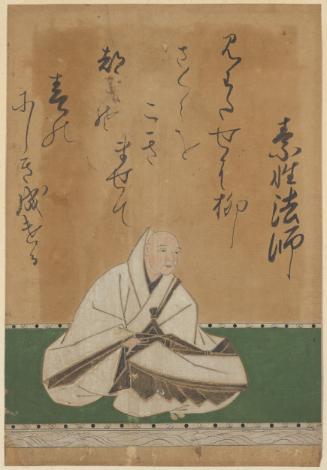 素性法師
見わたせは柳
さくらを
こき
ませて
都そ
春の
にしき成ける